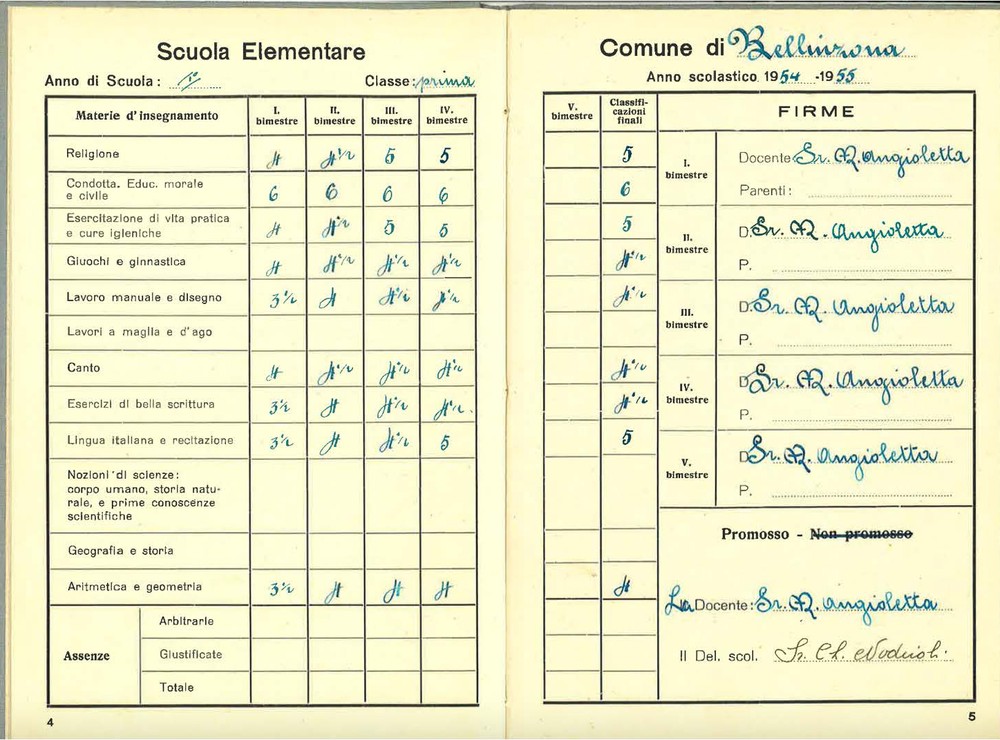 Scuola Elementare
Anno di Scuola: 1º Classe: prima
Materie d'insegnamento I. bimestre II. bimestre III. bimestre IV. bimestre
Religione 4 4½ 5 5
Condotta. Educ. morale
e civile 6 6 6 6
Esercitazione di vita pratica
e cure igieniche 4 4½ 5 5
Giuochi e ginnastica 4 4½ 4½ 4½
Lavoro manuale e disegno 3½ 4 4½ 4½
Lavori a maglia e d'ago
Canto 4 4½ 4½ 4½
Esercizi di bella scrittura 3½ 4 4½ 4½
Lingua italiana e recitazione 3½ 4 4½ 5
Nozioni di scienze:
corpo umano, storia natu-
rale, e prime conoscenze
scientifiche
Geografia e storia
Aritmetica e geometria 3½ 4 4 4
Assenze
Arbitrarie
Giustificate
Totale
4
Comune di Bellinzona
Anno scolastico 1954-1955
V. bimestre Classifi-
cazioni
finali FIRME
5
6
5
4½
4½
4½
4½
5
4
I. bimestre
Docente Sr. M. Angioletta
Parenti:
II. bimestre
D. Sr. M. Angioletta
P.
III. bimestre
D. Sr. M. Angioletta
P.
IV. bimestre
D. Sr. M. Angioletta
P.
V. bimestre
D. Sr. M. Angioletta
P.
Promosso - Non promosso
La Docente: Sr. M. Angioletta
Il Del. scol.
5